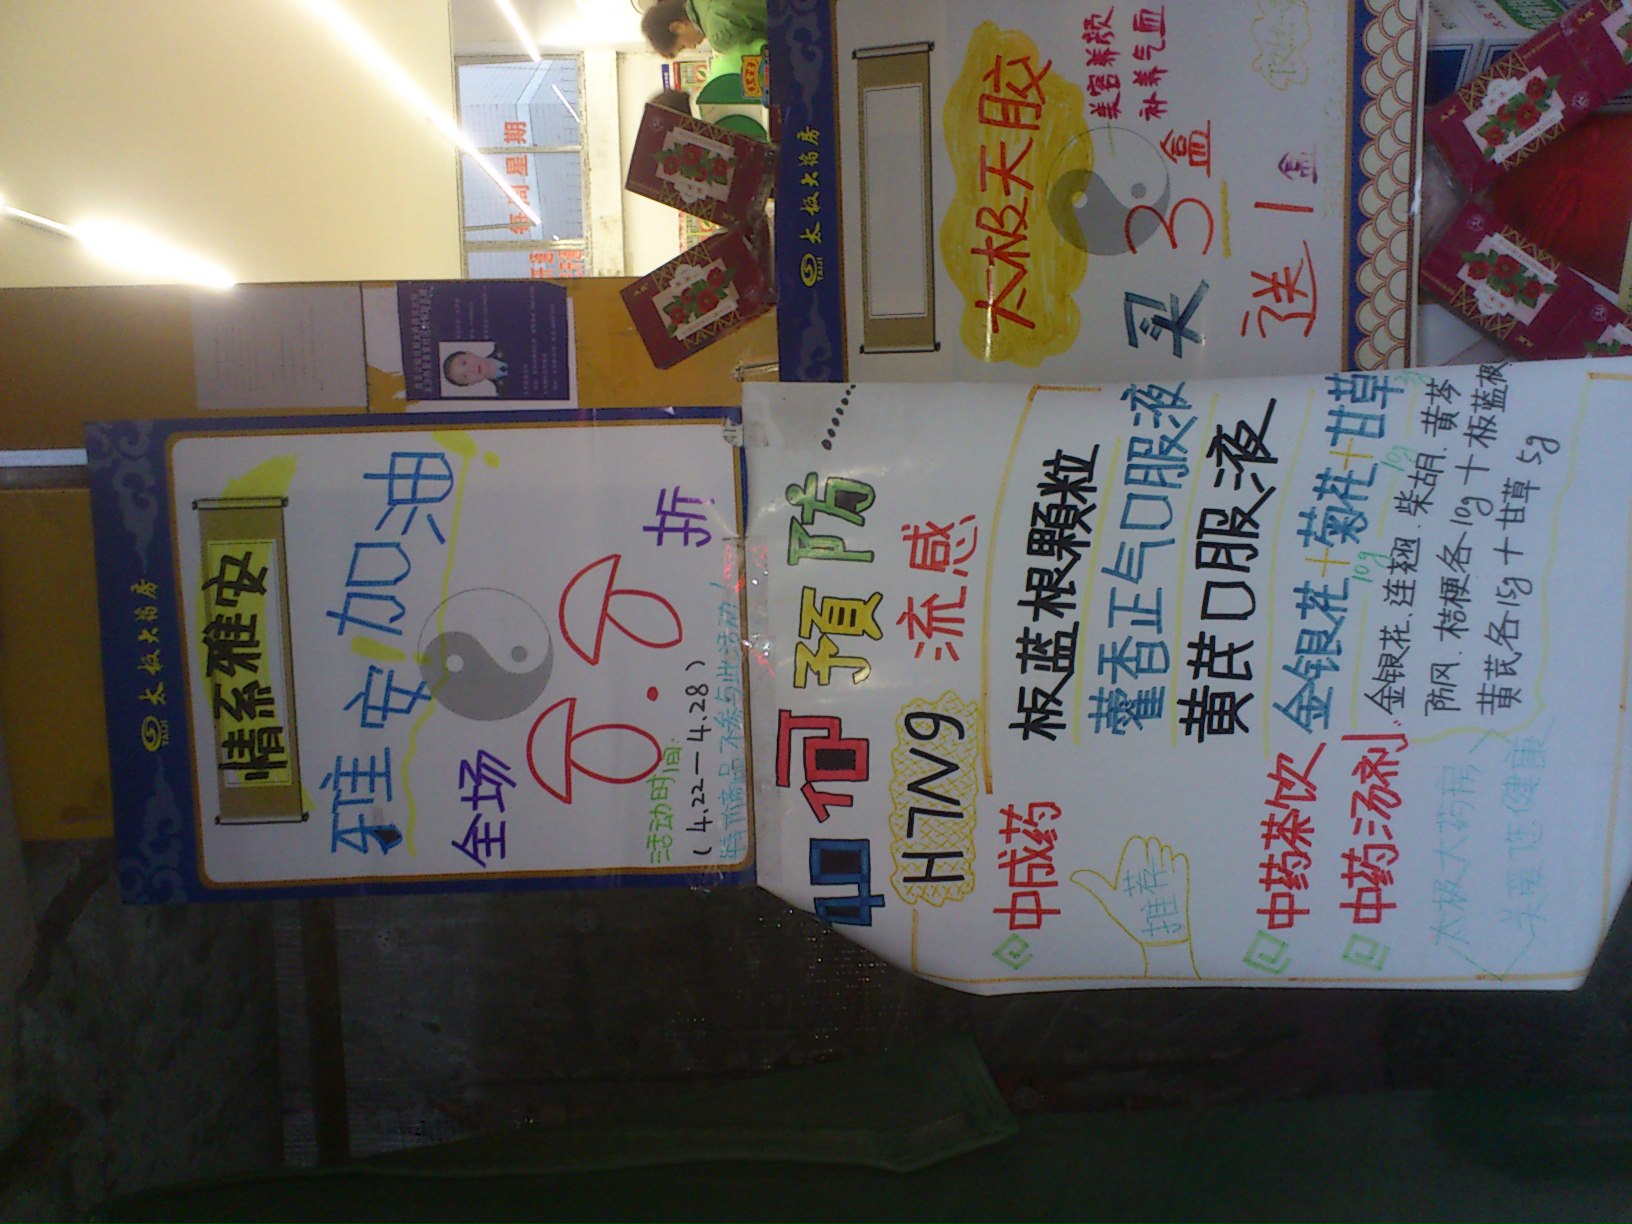 太极大药房
TAIJI
情系雅安
雅安加油
全场
8.8折
活动时间:
(4.22—4.28)
特价商品不参与此活动
如何預防
H7N9流感
中成药
板蓝根顆粒
藿香正气口服液
推荐
黄芪口服液
中药茶饮
金银花+菊花+甘草
10g 10g
中药汤剂:
金银花.连翘.柴胡.黄芩
防风.桔梗各10g+板蓝根
黄芪各15g+甘草5g
太极大药房
关爱您健康
太极大药房
TAIJI
太极天胶
美容养颜
补养气血
买3盒
送1盒
每周星期